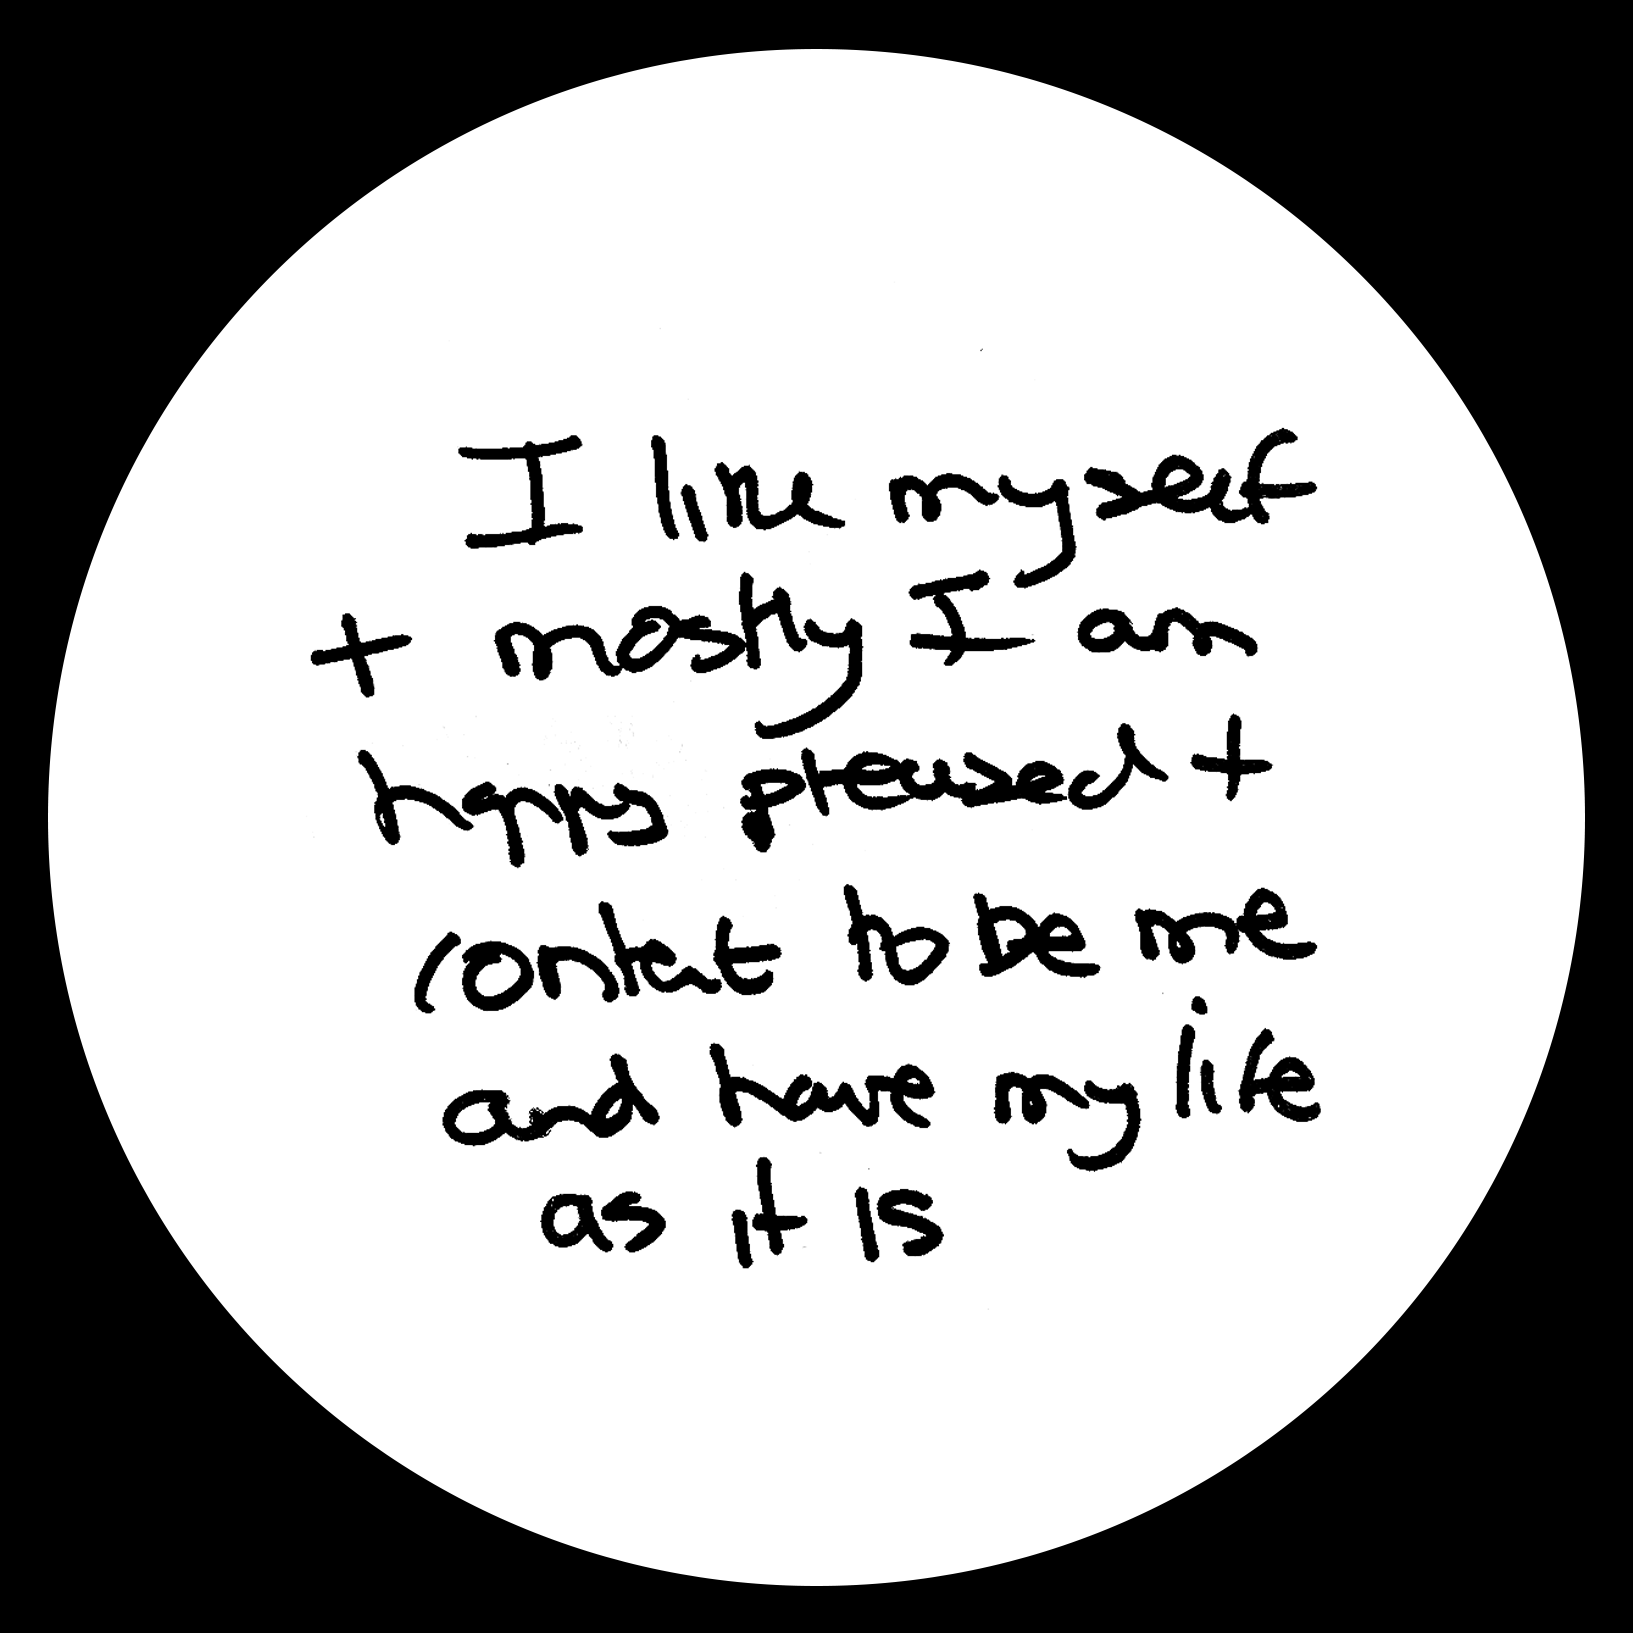 I like myself
+ mostly I am
happy pleased +
content to be me
and have my life
as it is